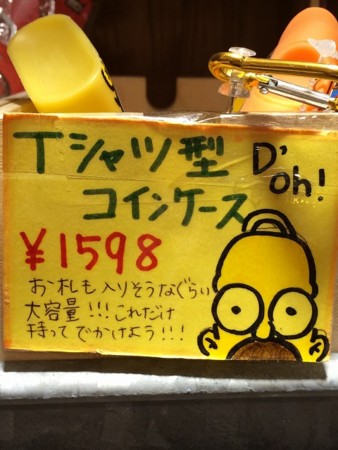 Tシャツ型
D'oh!
コインケース
¥1598
お札も入りそうなぐらい
大容量!!! これだけ
持ってでかけよう!!!